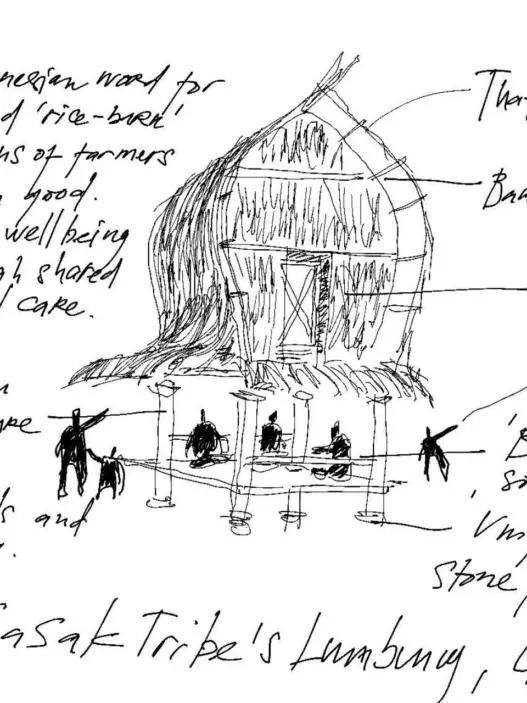 nesian word for
d 'rice-barn'
ns of farmers
good.
well being
gh shared
d care.
ype
s and
Tha
Ba
'B
Um
stone,
Sasak Tribe's Lumbung,